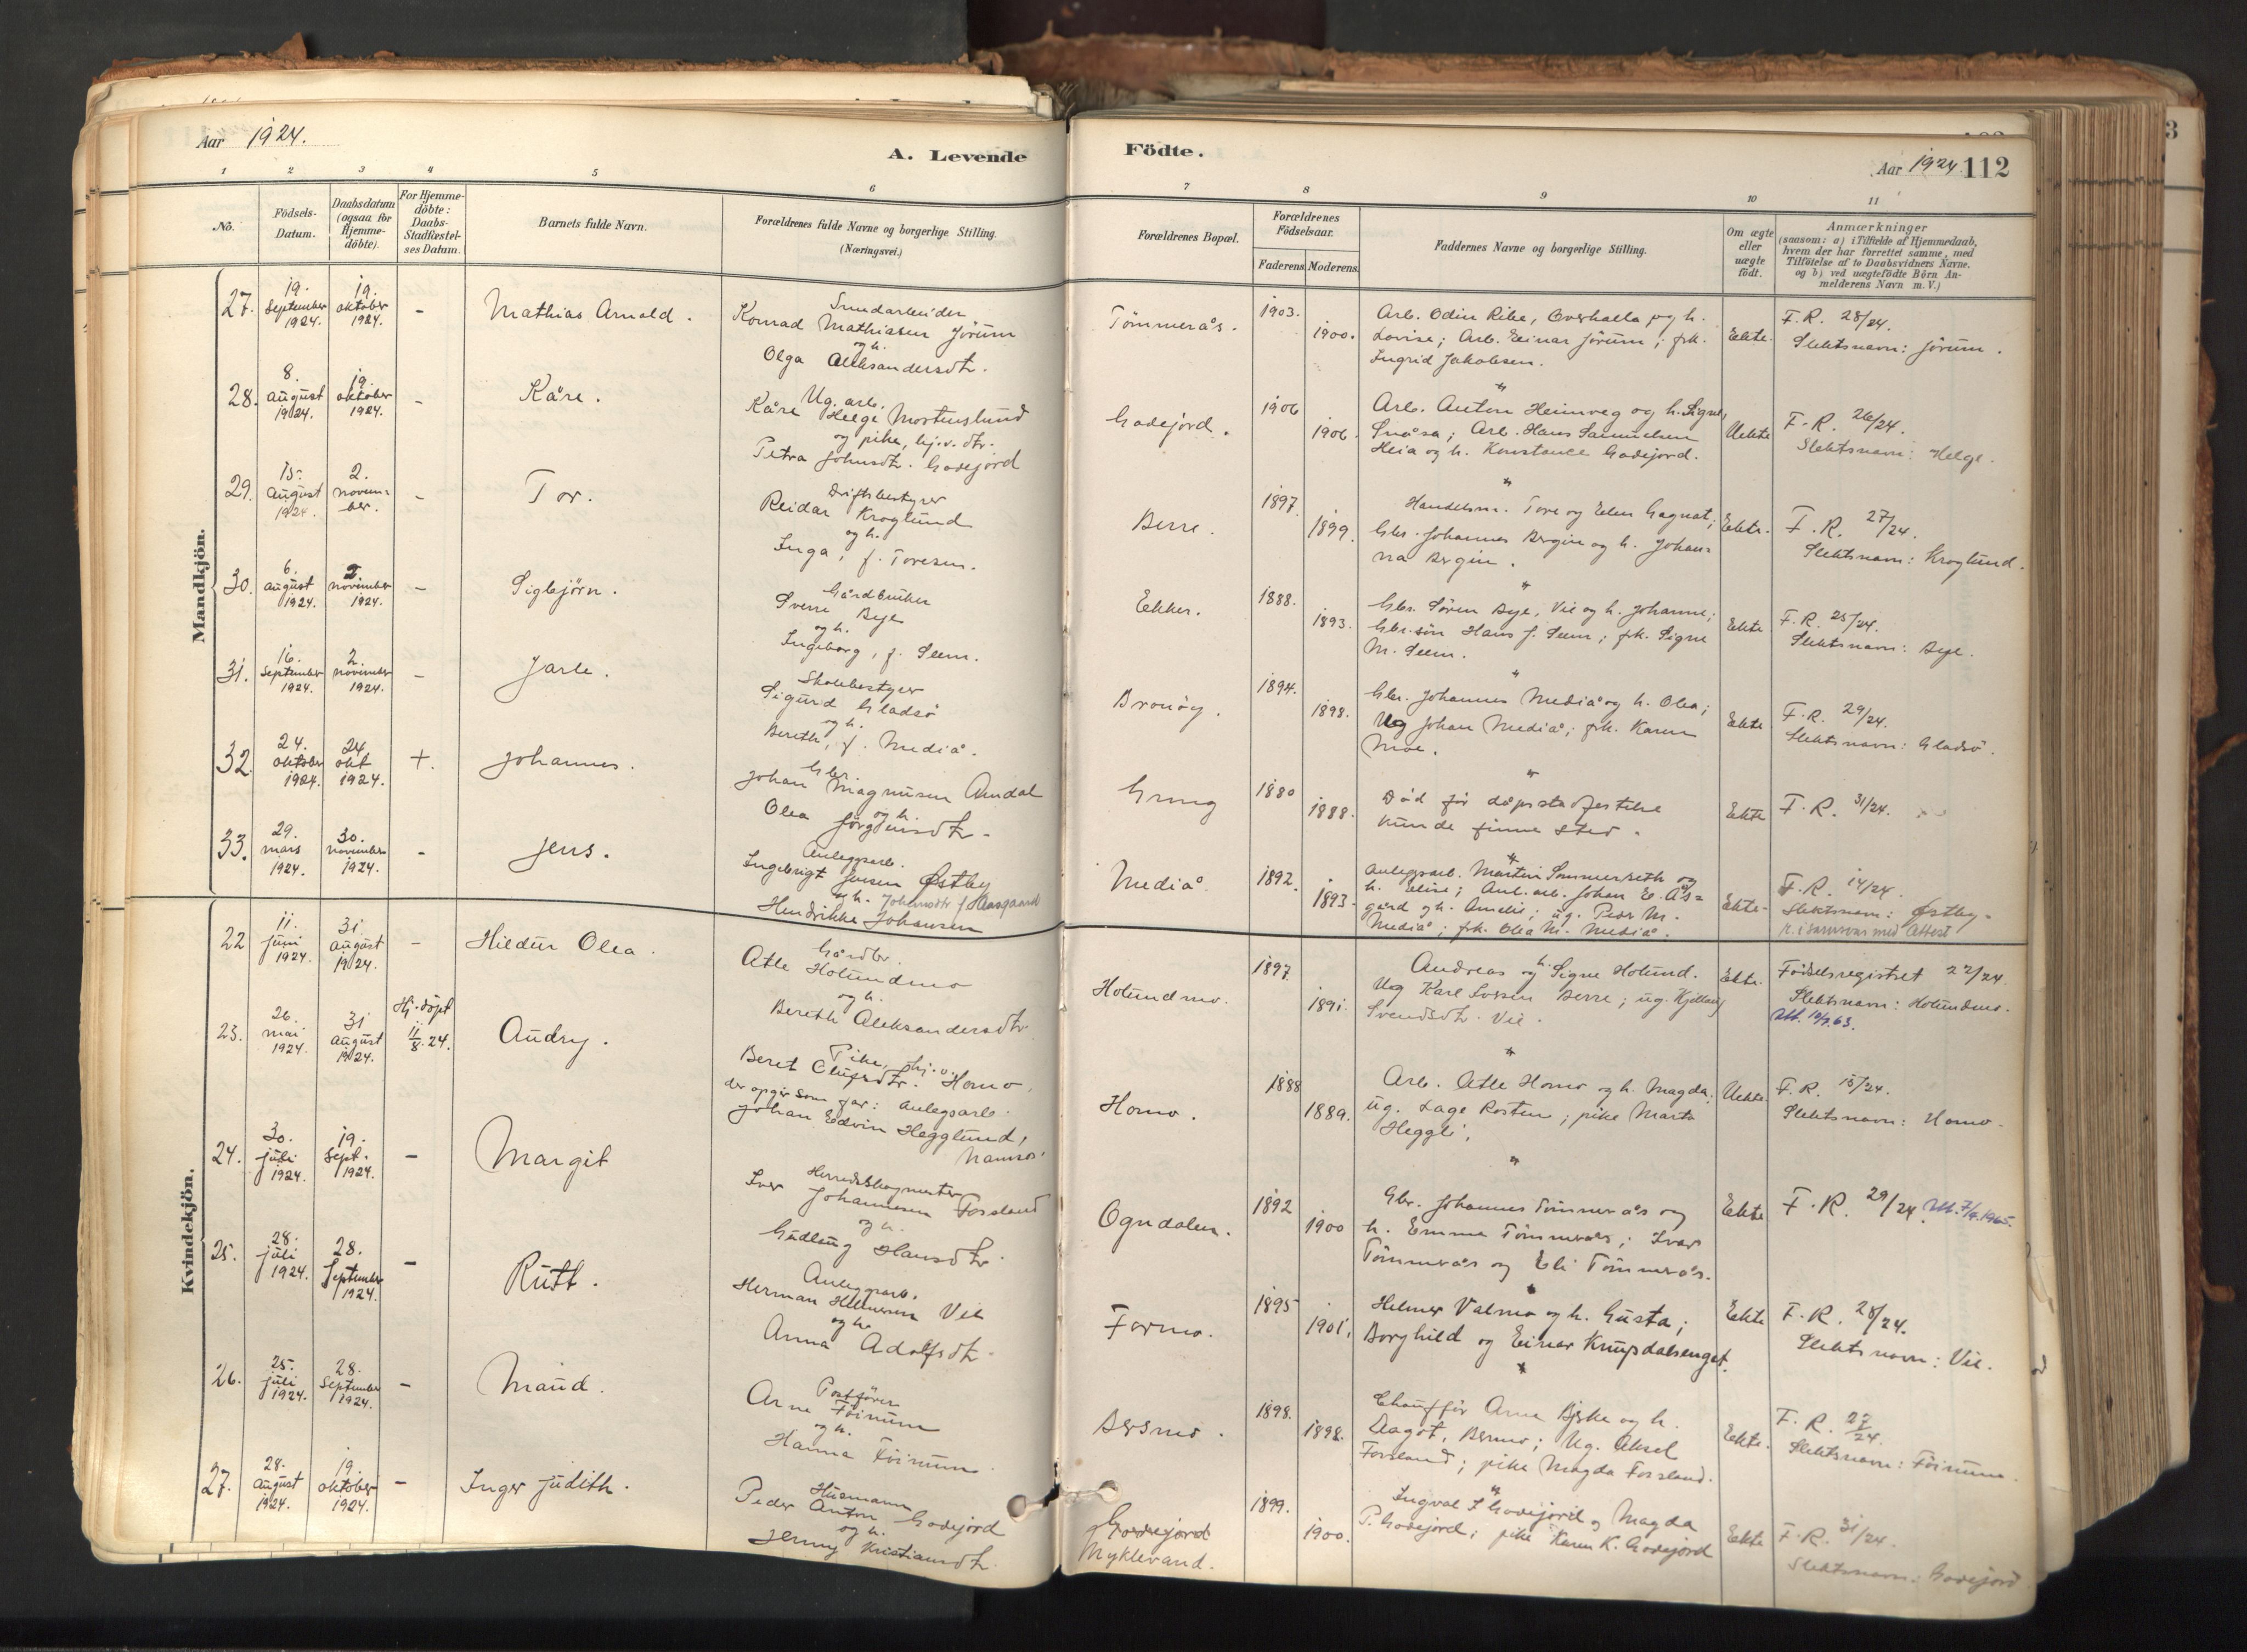 Aar 1924.
A. Levende
Födte.
Aar 1924 112
1 2 3 4 5 6
7 8 9 10 11
No.
Födsels-
Datum.
Daabsdatum
(ogsaa for
Hjemme-
döbte).
For Hjemme-
döbte:
Daabs-
Stadfæstel-
ses Datum.
Barnets fulde Navn.
Forældrenes fulde Navne og borgerlige Stilling.
(Næringsvei.)
Forældrenes Bopæl.
Forældrenes
Födselsaar.
Faderens. Moderens.
Faddernes Navne og borgerlige Stilling.
Om ægte
eller
uægte
födt.
Anmærkninger
(saasom: a) i Tilfælde af Hjemmedaab,
hvem der har forrettet samme, med
Tilföielse af to Daabsvidners Navne,
og b) ved uægtefödte Börn An-
melderens Navn m. V.)
Mandkjön.
27. 19. september 1924. 19. oktober 1924. -
Mathias Arnold.
Konrad Mathiasen Jörum
og h.
Olga Aleksandersdtr.
Tömmerås.
1903.
1900.
Arb. Odin Ribe, Overhalla og h.
Lovise; Arb. Einar Jörum; frk.
Ingrid Jakobsen.
Ekte.
F.R. 28/24.
Slektsnavn: Jörum.
28. 8. august 1924. 19. oktober 1924. -
Kåre.
Ug. arb.
Kåre Helge Mortenslund
og pike, hj.v. dtr.
Petra Johnsdtr. Godejord
Godejord.
1906
1906.
Arb. Anton Heimveg og h. Signe,
Snåsa; Arb. Hans Samuelsen
Heia og h. Konstance Godejord.
Uekte
F.R. 26/24.
Slektsnavn: Helge.
29. 15. august 1924. 2. novem-
ber. -
Tor.
Driftsbestyrer
Reidar Kroglund
og h.
Inga, f. Toresen.
Berre.
1897.
1899.
Handelsm. Tore og Elen Gagnat;
Gbr. Johannes Bergin og h. Johan-
na Bergin.
Ekte.
F.R. 27/24.
Slektsnavn: Kroglund.
30. 6. august 1924. 2 november 1924. -
Sigbjörn.
Gårdbruker
Sverre Bye
og h.
Ingeborg, f. Seem.
Ekker.
1888.
1893.
Gbr. Sören Bye, Vie og h. Johanne;
Gbr.sön Hans J. Seem; frk. Signe
M. Seem.
Ekte
F.R. 25/24.
Slektsnavn: Bye.
31. 16. september 1924. 2. november 1924. -
Jarle.
Skolebestyrer
Sigurd Gladsö
og h.
Bereth, f. Mediå.
Bronöy.
1894.
1898.
Gbr. Johannes Mediå og h. Olea;
Ug Johan Mediå; frk. Karen
Moe.
Ekte
F.R. 29/24.
Slektsnavn: Gladsö.
32. 24. oktober 1924. 24 okt 1924. +.
Johannes.
Gbr.
Johan Magnusen Amdal
og h.
Olea Jörgensdtr.
Grong
1880
1888.
Död för dåpsstadfestelse
kunde finne sted.
Ekte
F.R. 31/24.
33. 29. mars 1924. 30. november 1924. -
Jens.
Anleggsarb.
Ingebrigt Jensen Østby
og h. Johansdtr f. Aasgaard
Hendrikke Johansen
Mediå.
1892.
1893.
Anleggsarb. Martin Sommerseth og
h. Eline; Anl.arb. Johan E. Ås-
gard og h. Amelie; ug. Peder M.
Mediå; frk. Olea M. Mediå.
Ekte.
F.R. 14/24.
Slektsnavn: Østby.
r. i samsvar med Attest
Kvindekjön.
22 11. juni 1924. 31. august 1924. -
Hildur Olea.
Gårdbr.
Atle Holundmo
og h.
Bereth Aleksandersdtr.
Holundmo.
1897.
1891.
Andreas og h. Signe Holund.
Ug Karl Larsen Berre; ug. Kjellaug
Svendsdtr. Vie.
Ekte.
Födselsregistret 22/24.
Slektsnavn: Holundmo.
23. 26. mai 1924. 31 august 1924. Hj.döpt 11/8.24.
Audny.
Pike, hj.v.
Beret Olufsdtr. Homo.
der opgir som far: anleggsarb.
Johan Edvin Hegglund,
Namsos.
Homo.
1888
1889.
Arb. Atle Homo og h. Magda;
ug. Lage Rosten; pike Marta
Heggli.
Uekte
F.R. 15/24.
Slektsnavn: Homo.
24. 30. juli 1924. 19. sept. 1924. -
Margit
Herredskogmester
Iver Johannesen Forsland
og h.
Gudlaug Hansdtr.
Ogndalen.
1892
1900
Gbr. Johannes Tömmerås og
h. Emma Tömmerås; Ivar
Tömmerås og Eli Tömmerås.
Ekte
F.R. 29/24.
25. 28. juli 1924. 28. September 1924. -
Ruth.
Anleggsarb.
Herman Helmersen Vie
og h.
Anna Adolfsdtr.
Formo.
1895
1901.
Helmer Valmo og h. Gusta;
Borghild og Einar Krupdalsenget.
Ekte
F.R. 28/24.
Slektsnavn: Vie.
26. 25. juli 1924. 28. September 1924. -
Maud.
Postförer
Arne Föinum
og h.
Hanna Föinum.
Bersmo.
1898.
1898.
Chaufför Arne Bjske og h.
Dagot, Bersmo; Ug. Aksel
Forsland; pike Magda Forsland.
Ekte.
F.R. 27/24.
Slektsnavn: Föinum.
27. 28. august 1924. 19. oktober 1924. -
Inger Judith.
Husmann
Peder Anton Godejord
og h.
Jenny Kristiansdtr.
Godejord
Myklevand.
1899.
1900.
Ingval I Godejord og Magda
P. Godejord; pike Karen K. Godejord
Ekte
F.R. 31/24.
Slektsnavn: Godejord